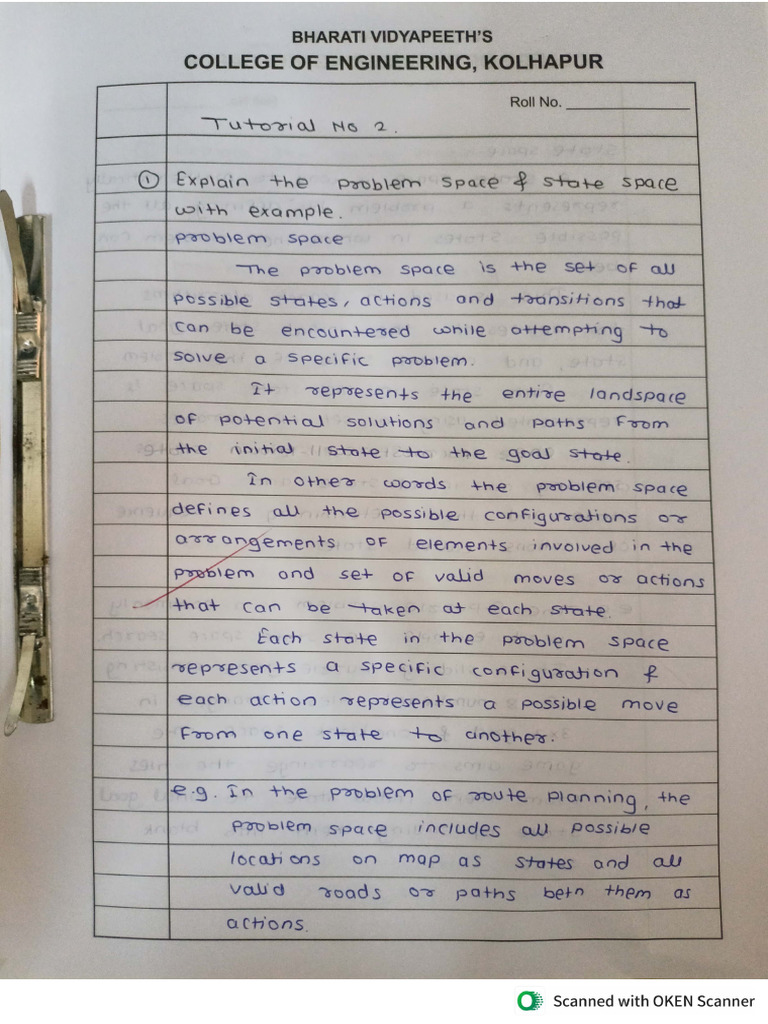 BHARATI VIDYAPEETH'S
COLLEGE OF ENGINEERING, KOLHAPUR
Roll No. ____________
Tutorial No 2.
① Explain the problem space & state space
with example.
problem space
The problem space is the set of all
possible states, actions and transitions that
can be encountered while attempting to
solve a specific problem.
It represents the entire landspace
of potential solutions and paths from
the initial state to the goal state.
In other words the problem space
defines all the possible configurations or
arrangements of elements involved in the
problem and set of valid moves or actions
that can be taken at each state.
Each state in the problem space
represents a specific configuration &
each action represents a possible move
from one state to another.
e.g. In the problem of route planning, the
problem space includes all possible
locations on map as states and all
valid roads or paths betn them as
actions.
Scanned with OKEN Scanner